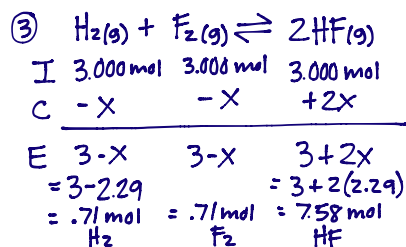 ③ H₂(g) + F₂(g) ⇌ 2HF(g)
I 3.000 mol 3.000 mol 3.000 mol
C -X -X +2X
E 3-X 3-X 3+2X
= 3-2.29 = 3+2(2.29)
= .71 mol = .71 mol = 7.58 mol
H₂ F₂ HF